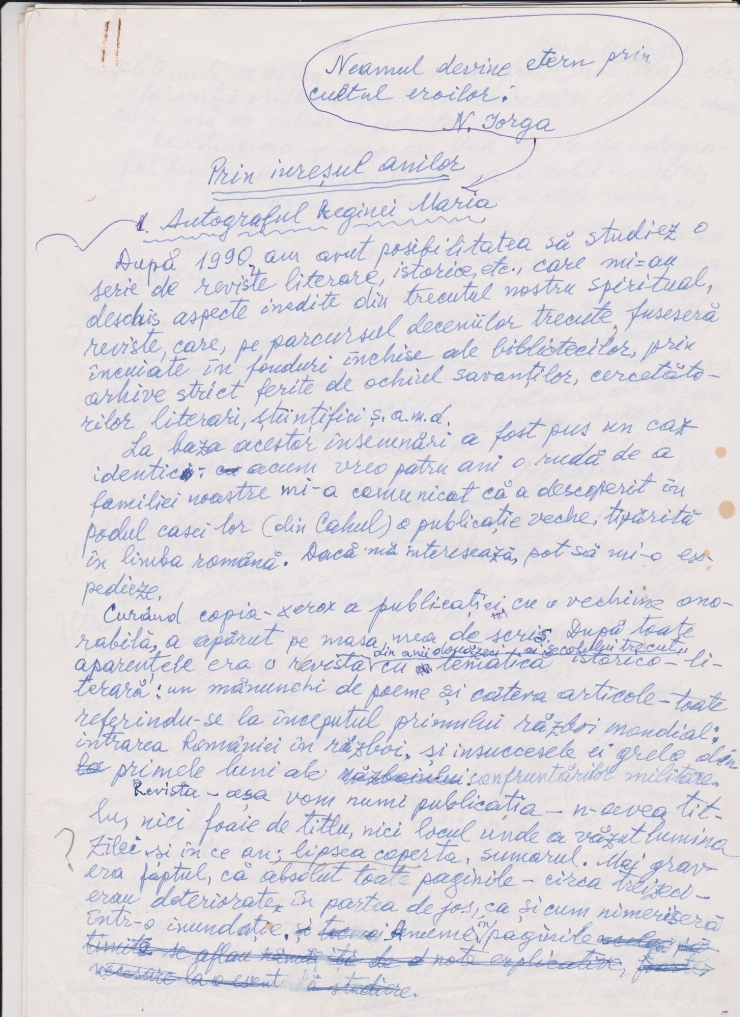 Neamul devine etern prin
cultul eroilor.
N. Iorga
Prin iureșul anilor
1. Autograful Reginei Maria
După 1990, am avut posibilitatea să studiez o
serie de reviste literare, istorice, etc., care mi-au
deschis aspecte inedite din trecutul nostru spiritual,
reviste, care, pe parcursul deceniilor trecute, fuseseră
încuiate în fonduri închise ale bibliotecilor, prin
arhive strict ferite de ochiul savanților, cercetăto-
rilor literari, științifici ș.a.m.d.
La baza acestor însemnări a fost pus un caz
identic: acum vreo patru ani o rudă de a
familiei noastre mi-a comunicat că a descoperit în
podul casei lor (din Cahul) o publicație veche, tipărită
în limba română. Dacă mă interesează, pot să mi-o ex-
pedieze.
Curând copia-xerox a publicației, cu o vechime ono-
rabilă, a apărut pe masa mea de scris. După toate
din anii douăzeci ai secolului trecut
aparențele era o revistă cu tematică istorico-li-
terară: un mănunchi de poeme și câteva articole - toate
referindu-se la începutul primului război mondial:
intrarea României în război, și insuccesele ei grele din
primele luni ale războiului confruntărilor militare.
Revista - așa vom numi publicația - n-avea tit-
lu, nici foaie de titlu, nici locul unde a văzut lumina
zilei și în ce an; lipsea coperta, sumarul. Mai grav
era faptul, că absolut toate paginile - circa treizeci -
erau deteriorate, în partea de jos, ca și cum nimeriseră
într-o inundație. Anume în paginile
se aflau de note explicative,
necesare la o studiere.
?